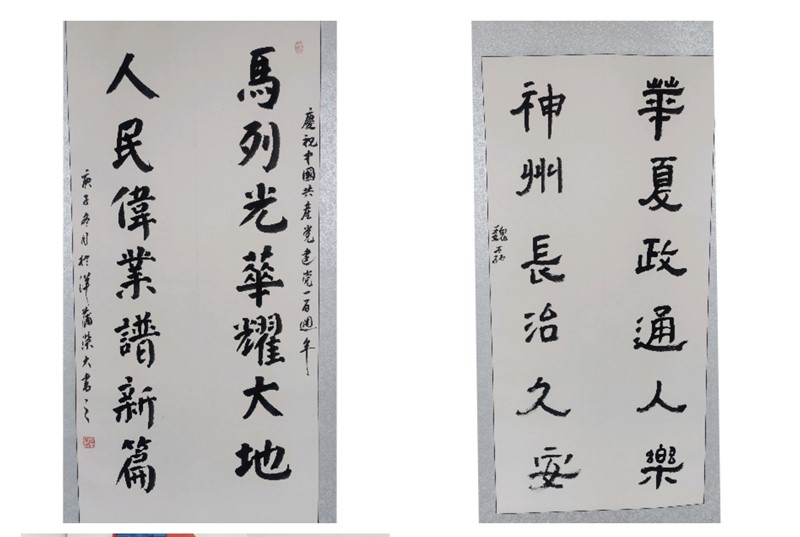 慶祝中國共産党建党一百週年
馬列光華耀大地
人民偉業譜新篇
庚子冬月於洋蒲榮大書
華夏政通人樂
神州長治久安
魏